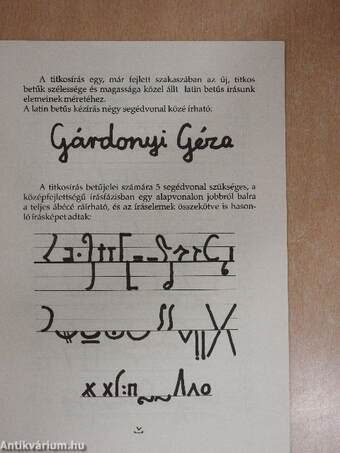 A titkosírás egy, már fejlett szakaszában az új, titkos
betűk szélessége és magassága közel állt latin betűs írásunk
elemeinek méretéhez.
A latin betűs kézírás négy segédvonal közé írható:
Gárdonyi Géza
A titkosírás betűjelei számára 5 segédvonal szükséges, a
középfejlettségű írásfázisban egy alapvonalon jobbról balra
a teljes ábécé ráírható, és az íráselemek összekötve is hason-
ló írásképet adtak:
Antikvárium.hu